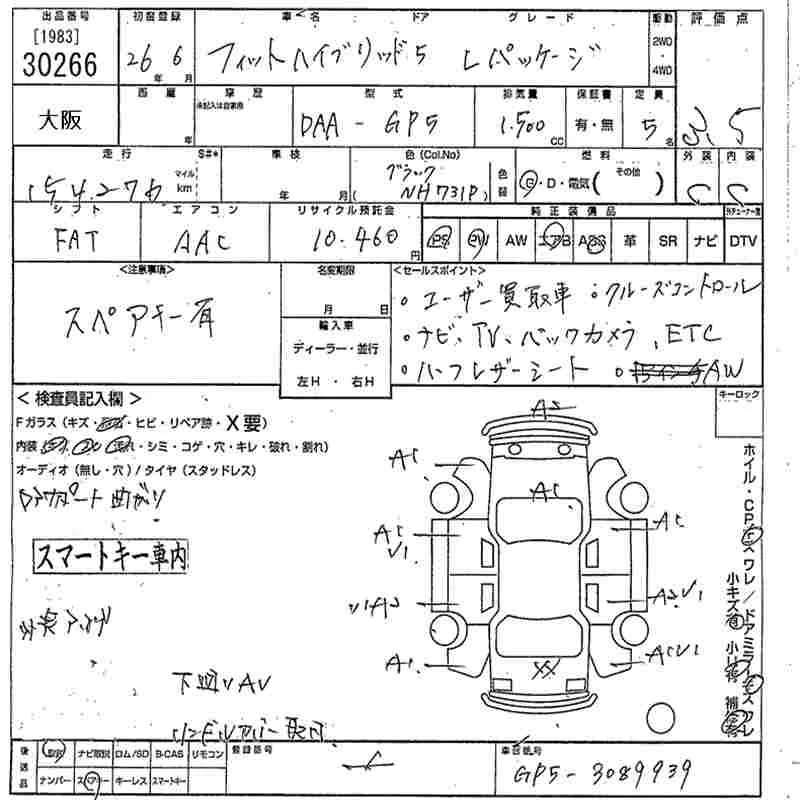 出品番号 初度登録 車名 ドア グレード 駆動 評価点
[1983]
30266
26年 6月 フィットハイブリッド 5 Lパッケージ 2WD・4WD
3.5
大阪
西暦 年 車歴 未記入は自家用 型式 排気量 保証書 定員
DAA - GP5 1.500cc 有・無 5名
走行 S#* 車検 色(Col.No) 燃料 外装 内装
154.276 マイル km 年 月 ブラック (NH731P) 色替 G・D・電気( その他 ) C C
シフト エアコン リサイクル預託金 純正装備品
FAT AAC 10.460円 PS PW AW エアB ABS 革 SR ナビ DTV
<注意事項> 名変期限 <セールスポイント>
スペアキー有
月 日
輸入車
ディーラー・並行
左H・右H
・ユーザー買取車 ・クルーズコントロール
・ナビ、TV、バックカメラ、ETC
・ハーフレザーシート ・AW
<検査員記入欄> キーロック
Fガラス(キズ・ ・ヒビ・リペア跡・X要)
内装( ・シミ・コゲ・穴・キレ・破れ・割れ)
オーディオ(無し・穴)/タイヤ(スタッドレス)
スマートキー車内
A2
A1
A1
A1
V1
A1
V1A2
A2V1
A1
A1V1
XX
下廻り AV
後送品 ナビ取説 ロム/SD B-CAS リモコン 登録番号 車台番号
ナンバー スペアキー キーレス スマートキー
GP5-3089939